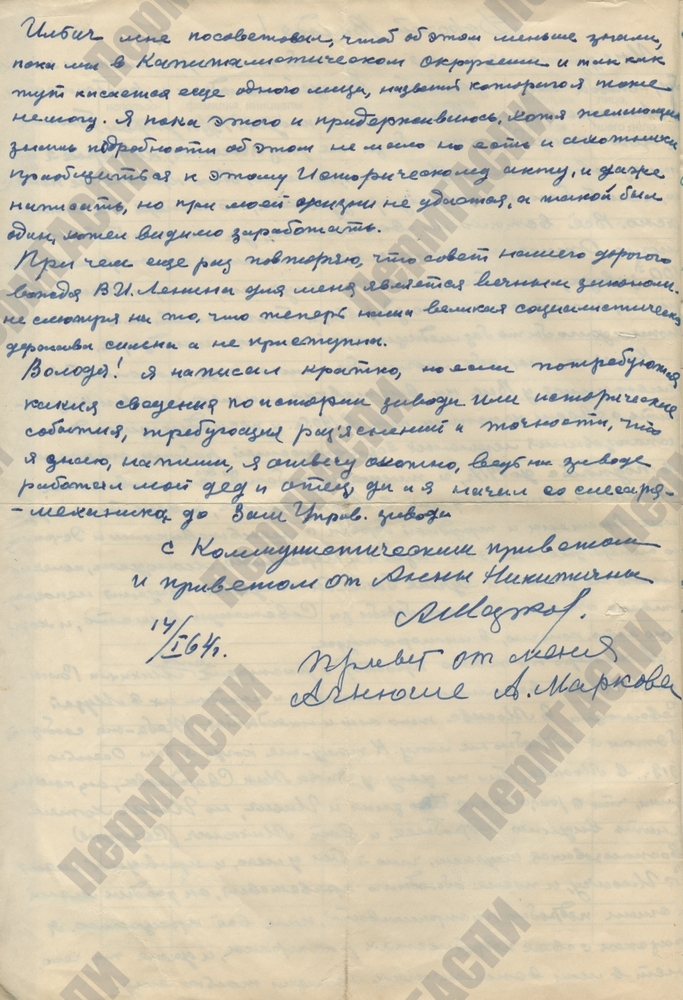 Ильич мне посоветовал, чтоб об этом меньше знали,
пока мы в Капиталистическом окружении и так как
тут касается еще одного лица, назвать которого я тоже
немогу. Я пока этого и придерживаюсь, хотя желающих
знать подробности об этом не мало но есть и охотники
приобщиться к этому Историческому акту, и даже
написать, но при моей жизни не удастся, а такой был
один, хотел видимо заработать.
При чем еще раз повторяю, что совет нашего дорогого
вождя В.И. Ленина для меня является вечным законом.
не смотря на то, что теперь наша великая социалистическая
держава сильна и не приступна.
Володя! я написал кратко, но если потребуются
какия сведения по истории завода или исторические
события, требующия раз'яснений и точности, что
я знаю, напиши, я отвечу охотно, ведь на заводе
работал мой дед и отец, да и я начал со слесаря-
-механика, до Зам Управ. завода
с Коммунистическим приветом
и приветом от Анны Никитичны
АМарков.
14/I 64г.
Привет от меня
Агнюше А. Маркова
ПермГАСПИ